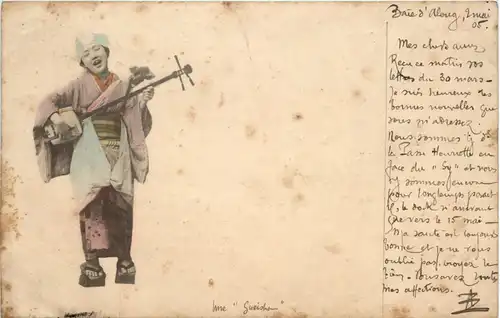 Baie d'Along, 2 mai
05.
Mes chers amis
Reçu ce matin vos
lettres du 30 mars -
Je suis heureux des
bonnes nouvelles que
vous m'adressez.
Nous sommes à
la Passe Henriette en
face du "Sy" et nous
y sommes encore
pour longtemps parait
il, le dock n'arrivant
que vers le 15 mai -
Ma santé est toujours
bonne et je ne vous
oublie pas, croyez le
bien. Vous avez toutes
mes affections.
une "Gueisha"